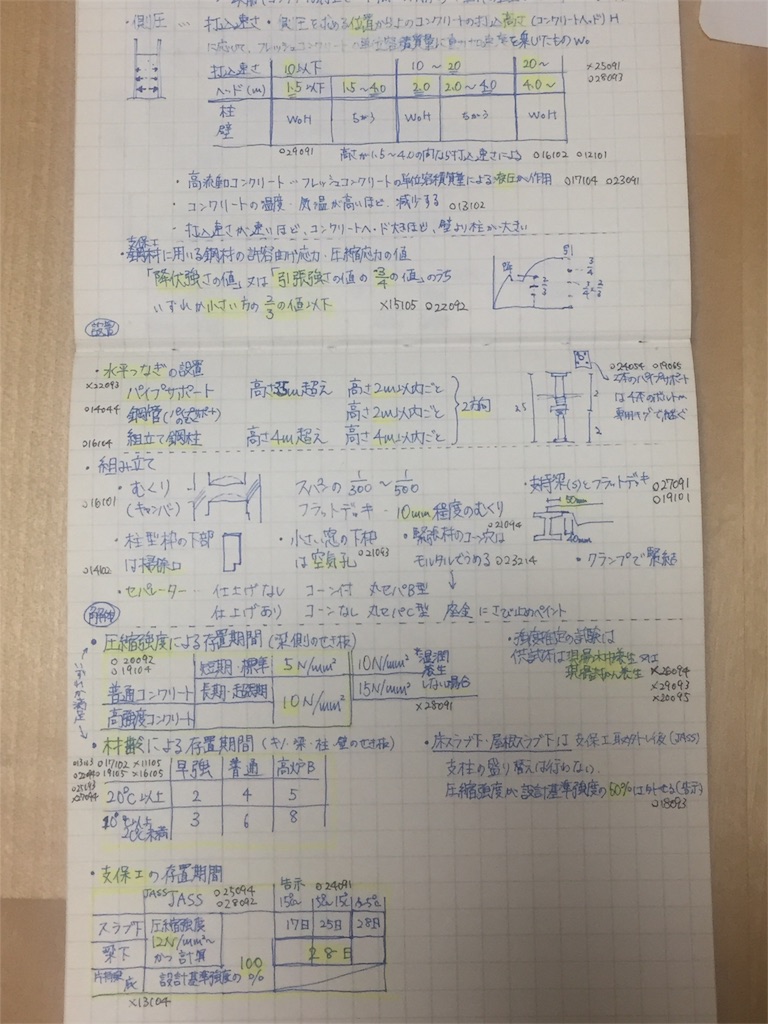 側圧 … 打込速さ・側圧を求める位置から上のコンクリートの打込高さ(コンクリートヘッド)H
に応じて、フレッシュコンクリートの単位容積質量に重力加速度を乗じたもの W₀
打込速さ 10以下 10～20 20～ ×25091
ヘッド(m) 1.5以下 1.5～4.0 2.0 2.0～4.0 4.0～ ○28093
柱 壁 W₀H ちがう W₀H ちがう W₀H
○29091 高さが1.5～4.0の間なら打込速さによる ○16102 ○12101
・高流動コンクリート…フレッシュコンクリートの単位容積質量による液圧が作用 ○17104 ○23091
・コンクリートの温度・気温が高いほど、減少する ○13102
・打込速さが速いほど、コンクリートヘッド大きほど、壁より柱が大きい
支保工
・鋼材に用いる鋼材の許容曲げ応力・圧縮応力の値
「降伏強さの値」又は「引張強さの値の3/4の値」のうち
いずれか小さい方の2/3の値以下 ×15105 ○22092
2/3 3/4 3/4×2/3
設置
・水平つなぎの設置
×22093 パイプサポート 高さ3.5m超え 高さ2m以内ごと
○14044 鋼管(パイプサポート) 高さ2m以内ごと 2方向
○16104 組立て鋼柱 高さ4m超え 高さ4m以内ごと
2.5 2 2
○24054 ○19065
2本のパイプサポート
は4本のボルトor
専用金具で継ぐ
・組み立て
○16101 ・むくり(キャンバー) スパンの 1/300～1/500
フラットデッキ…10mm程度のむくり
・支持梁(S)とフラットデッキ ○27091
○19101
50mm
40mm
・柱型枠の下部 ・小さい窓の下枠 ・緊張材のコーン穴は ○21094
○14102 は掃除口 は空気孔 ○21093 モルタルでうめる ○23214 ・クランプで緊結
・セパレーター… 仕上げなし コーン付 丸セパB型
仕上げあり コーンなし 丸セパC型 座金にさび止めペイント
解体
・圧縮強度による存置期間(梁側のせき板)
○20092 ○19104 短期・標準 5N/mm² 10N/mm² *湿潤養生しない場合
普通コンクリート 長期・超長期 10N/mm² 15N/mm²
高強度コンクリート ×28091
いずれか満足
・強度推定の試験は
供試体は現場水中養生又は
現場封かん養生 ×28094
×29093
×20095
・材齢による存置期間(キソ・梁・柱・壁のせき板)
○13103 ○17102 ×11105
○20044 ○19105 ×16105
早強 普通 高炉B
20℃以上 2 4 5
10℃以上20℃未満 3 6 8
・床スラブ下・屋根スラブ下は支保工取外した後(JASS)
支柱の盛り替えは行わない
圧縮強度が設計基準強度の50%にはずせる(告示)
○18093
・支保工の存置期間
JASS JASS ○25094 ○28092 告示 ○24091
15℃ 5℃～15℃ ～5℃
スラブ下 圧縮強度 17日 25日 28日
梁下 12N/mm²～かつ計算 28日
片持梁・庇 設計基準強度の100%
×13104